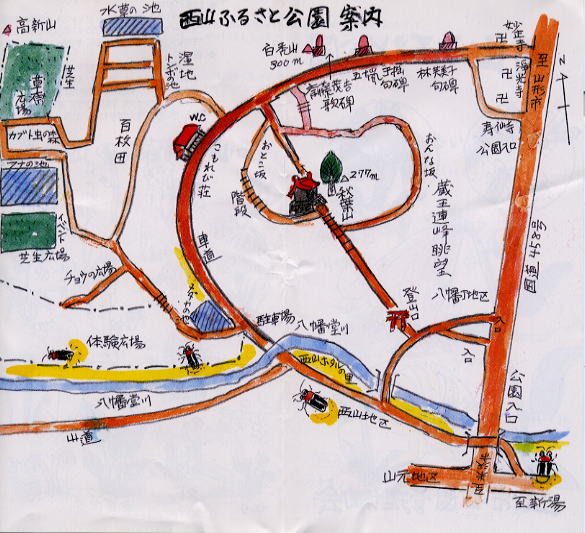 西山ふるさと公園 案内
高新山
水草の池
草原
広場
芝生
カブト虫の森
湿地
トンボの池
百枚田
アナの池
イベント
芝生広場
チョウの広場
W.C
こもれび荘
車道
メダカの池
駐車場
体験広場
八幡堂川
八幡堂川
山道
西山ホタルの里
西山地区
白鷹山
900m
斎藤茂吉
歌碑
句碑
林芙美子
句碑
妙正寺
卍
浄光寺
卍
至山形市
N
寿仙寺
公園入口
おとこ坂
階段
おんな坂
△277m
秋葉山
蔵王連峰眺望
登山口
八幡丁地区
入口
国道458号
公園入口
山元地区
至新湯